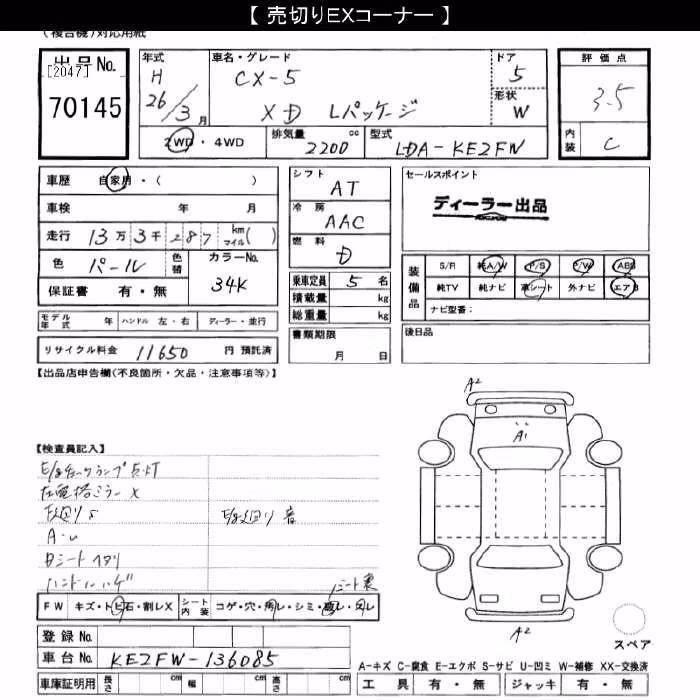 【 売切りEXコーナー 】
(複合機)対応用紙
出品No.
[2047]
70145
年式
H
26/3月
車名・グレード
CX-5
XD Lパッケージ
ドア
5
形状
W
評価点
3.5
内装
C
2WD・4WD
排気量 2200 cc
型式 LDA-KE2FW
車歴 自家用・( )
車検 年 月
走行 13万3千287 km マイル( )
色 パール
色替
カラーNo. 34K
保証書 有・無
シフト AT
冷房 AAC
燃料 D
乗車定員 5 名
積載量 kg
総重量 kg
書類期限
月 日
セールスポイント
ディーラー出品
装備品
S/R 純A/W P/S P/W ABS
純TV 純ナビ 革シート 外ナビ エアB
ナビ型番:
後日品
モデル年式 年 ハンドル 左・右 ディーラー・並行
リサイクル料金 11650 円 預託済
【出品店申告欄(不良箇所・欠品・注意事項等)】
【検査員記入】
E/gチェックランプ点灯
左電格ミラー X
下廻りS
E/g廻り 音
A・U
Dシートヘタリ
ハンドルハゲ
シート裏
FW キズ・トビ石・割レX
シート内装 コゲ・穴・汚レ・シミ・
A2
A1
A2
スペア
登録No.
車台No. KE2FW-136085
車庫証明用 長さ cm 幅 cm 高さ cm
A-キズ C-腐食 E-エクボ S-サビ U-凹ミ W-補修 XX-交換済
工具 有・無 ジャッキ 有・無